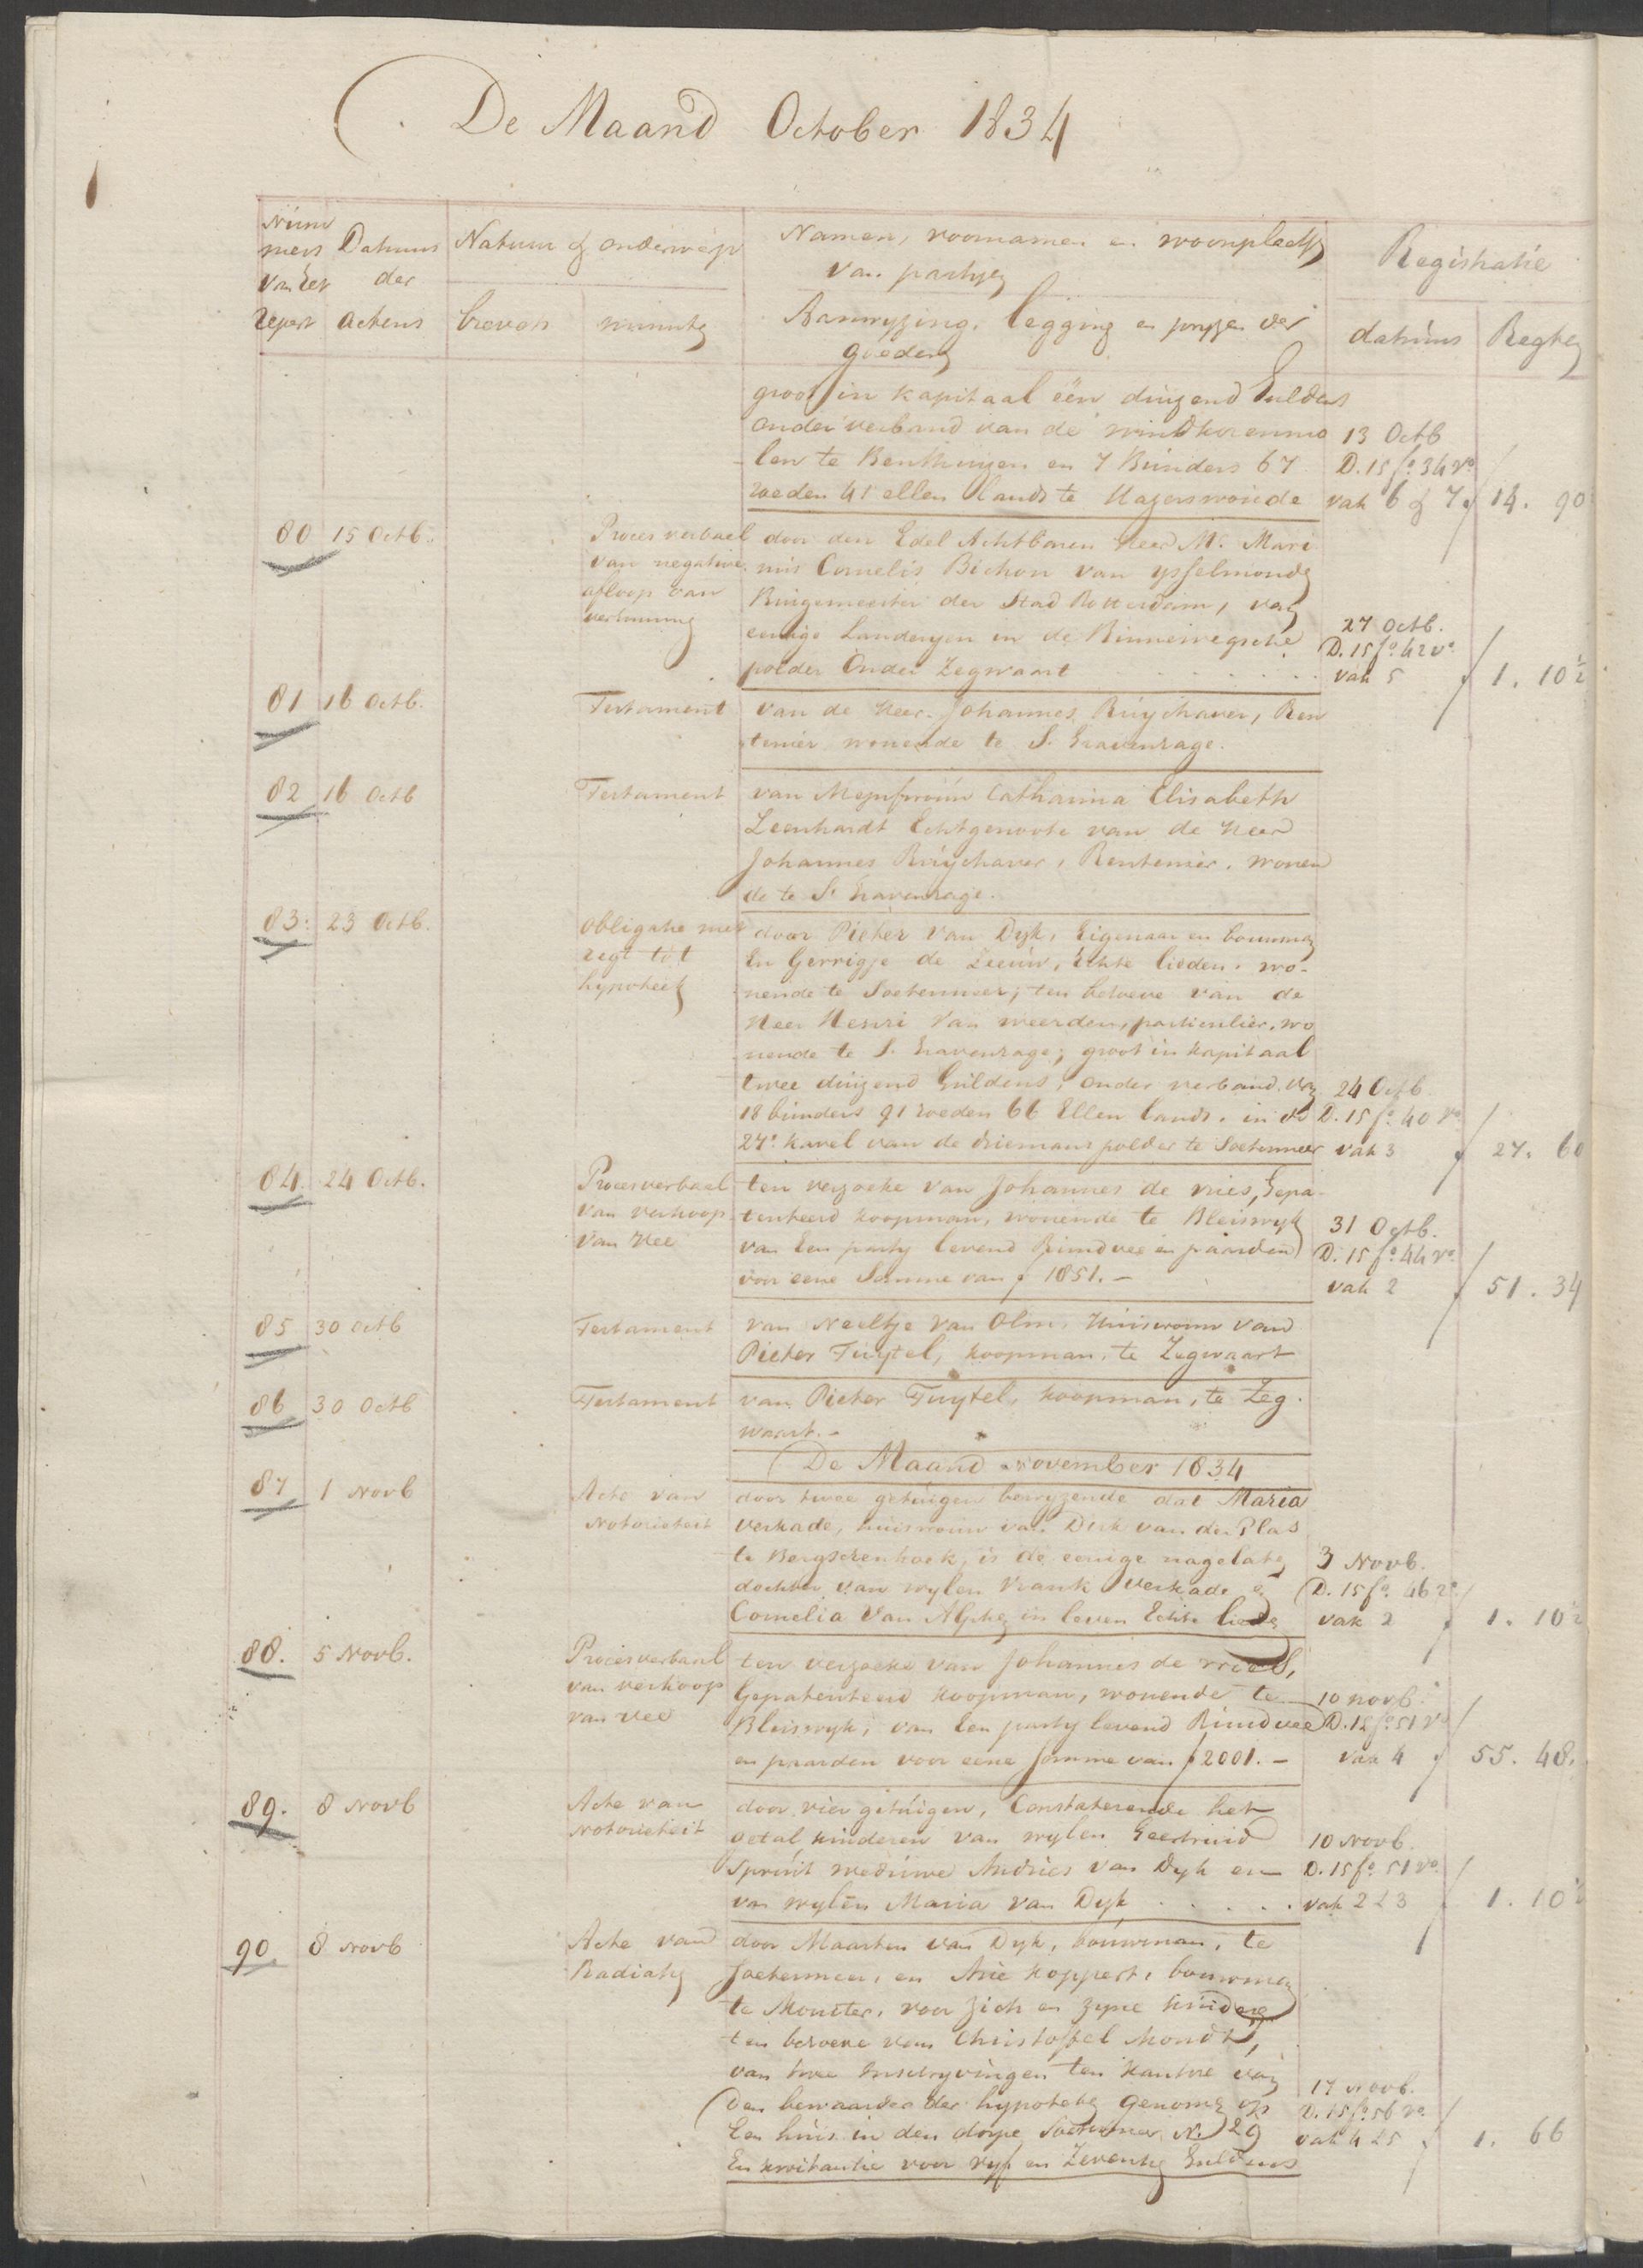 De Maand October 1834
Num
mers
van het
repert
Datums
der
actens
Natuur of onderwerp
brevets
minuten
Namen, voornamen en woonplaatsen
van partyen
Aanwyzing, legging en pryzen der
goederen
Registratie
datums
Regten
groot in kapitaal één duizend Guldens
onder verband van de windkorenmo
len te Benthuizen en 7 Bunders 67
roeden 41 ellen lands te Hazerswoude
13 Octb
D. 15 fo. 34 vo.
vak 6 & 7
f 14. 90
80
15 Octb.
Proces verbaal
van negative
afloop van
verhuring
door den Edel Achtbaren Heer Mr. Mari
nus Cornelis Bichon van ysselmonde
Burgemeester der Stad Rotterdam, van
eenige Landeryen in de Binnenwegsche
polder Onder Zegwaart
27 Octb.
D. 15 fo. 42 vo.
vak 5
f 1. 10½
81
16 Octb.
Testament
van de Heer Johannes Ruychaver, Ren
tenier wonende te S. Gravenhage.
82
16 Octb
Testament
van Mejufvrouw Catharina Elisabeth
Leenhardt Echtgenoote van de Heer
Johannes Ruychaver, Rentenier, wonen
de te S. Gravenhage.
83.
23 Octb.
Obligatie met
regt tot
hypotheek
door Pieter van Dyk, Eigenaar en bouwman
En Gerrigje de Leeuw, Echte lieden, wo-
nende te Soetermeer, ten behoeve van de
Heer Henri van weerden, particulier, wo
nende te S. Gravenhage; groot in kapitaal
twee duizend Guldens, onder verband van
18 bunders 91 roeden 66 Ellen lands, in de
27e. kavel van de driemanspolder te Soetermeer
24 Octb
D. 15 fo. 40 vo.
vak 3
f 27. 60
84.
24 Octb.
Procesverbaal
van verkoop
van vee
ten verzoeke van Johannes de vries, Gepa-
tenteerd koopman, wonende te Bleiswyk
van Een party levend Rundvee en paarden
voor eene Somme van f 1851.-
31 Octb.
D. 15 fo. 44 vo.
vak 2
f 51. 34
85
30 Octb
Testament
van Neeltje van Olm, Huisvrouw van
Pieter Tuytel, koopman, te Zegwaart
86
30 Octb
Testament
van Pieter Tuytel, koopman, te Zeg-
waart.-
De Maand November 1834
87
1 Novb
Acte van
Notorieteit
door twee getuigen bewyzende dat Maria
verkade, huisvrouw van Dirk van der Plas
te Bergschenhoek, is de eenige nagelaten
dochter van wylen Vrank verkade en
Cornelia van Alphen in leven Echte lieden
3 Novb.
D. 15 fo. 46 ro.
vak 2
f 1. 10½
88.
5 Novb.
Procesverbaal
van verkoop
van vee
ten verzoeke van Johannes de vries,
Gepatenteerd koopman, wonende te
Bleiswyk, van Een party levend Rundvee
en paarden voor eene somme van f 2001.-
10 novb.
D. 15 fo. 51 vo
vak 4
f 55. 48.
89.
8 Novb
Acte van
Notorieteit
door vier getuigen, Constaterende het
getal kinderen van wylen Geertruid
Spruit weduwe Andries van Dyk en
van wylen Maria van Dyk
10 Novb.
D. 15 fo. 51 vo.
vak 2 & 3
f 1. 10½
90
8 Novb
Acte van
Radiatie
door Maarten van Dyk, bouwman, te
Soetermeer, en Arie koppert, bouwman
te Monster, voor zich en zyne kinderen
ten behoeve van Christoffel Mondt,
van twee Inschryvingen ten kantore van
Den bewaarder der hypotheken genomen op
Een huis in den dorpe Soetermeer No. 29
En kwitantie voor vyf en Zeventig Guldens
17 Novb.
D. 15 fo. 56 vo.
vak 4 & 5
f 1. 66